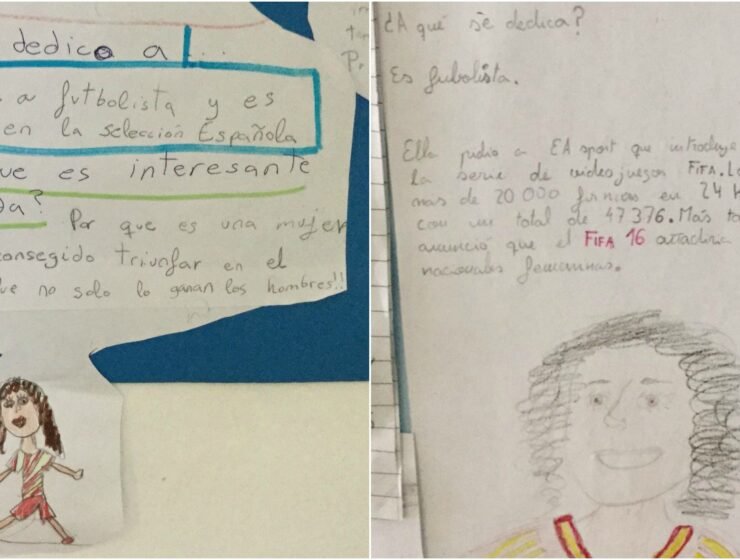 dedico a ...
a futbolista y es
en la selección Española
ue es interesante
da? Por que es una mujer
consegido triunfar en el
ue no solo lo ganan los hombres!!
¿A qué se dedica?
Es fubolista.
Ella pidio a EA sport que introduje
la serie de videojuegos FIFA. Lo
mas de 20 000 firmas en 24 H
con un total de 47 376. Mas ta
anunció que el FIFA 16
nacionales femeninas.